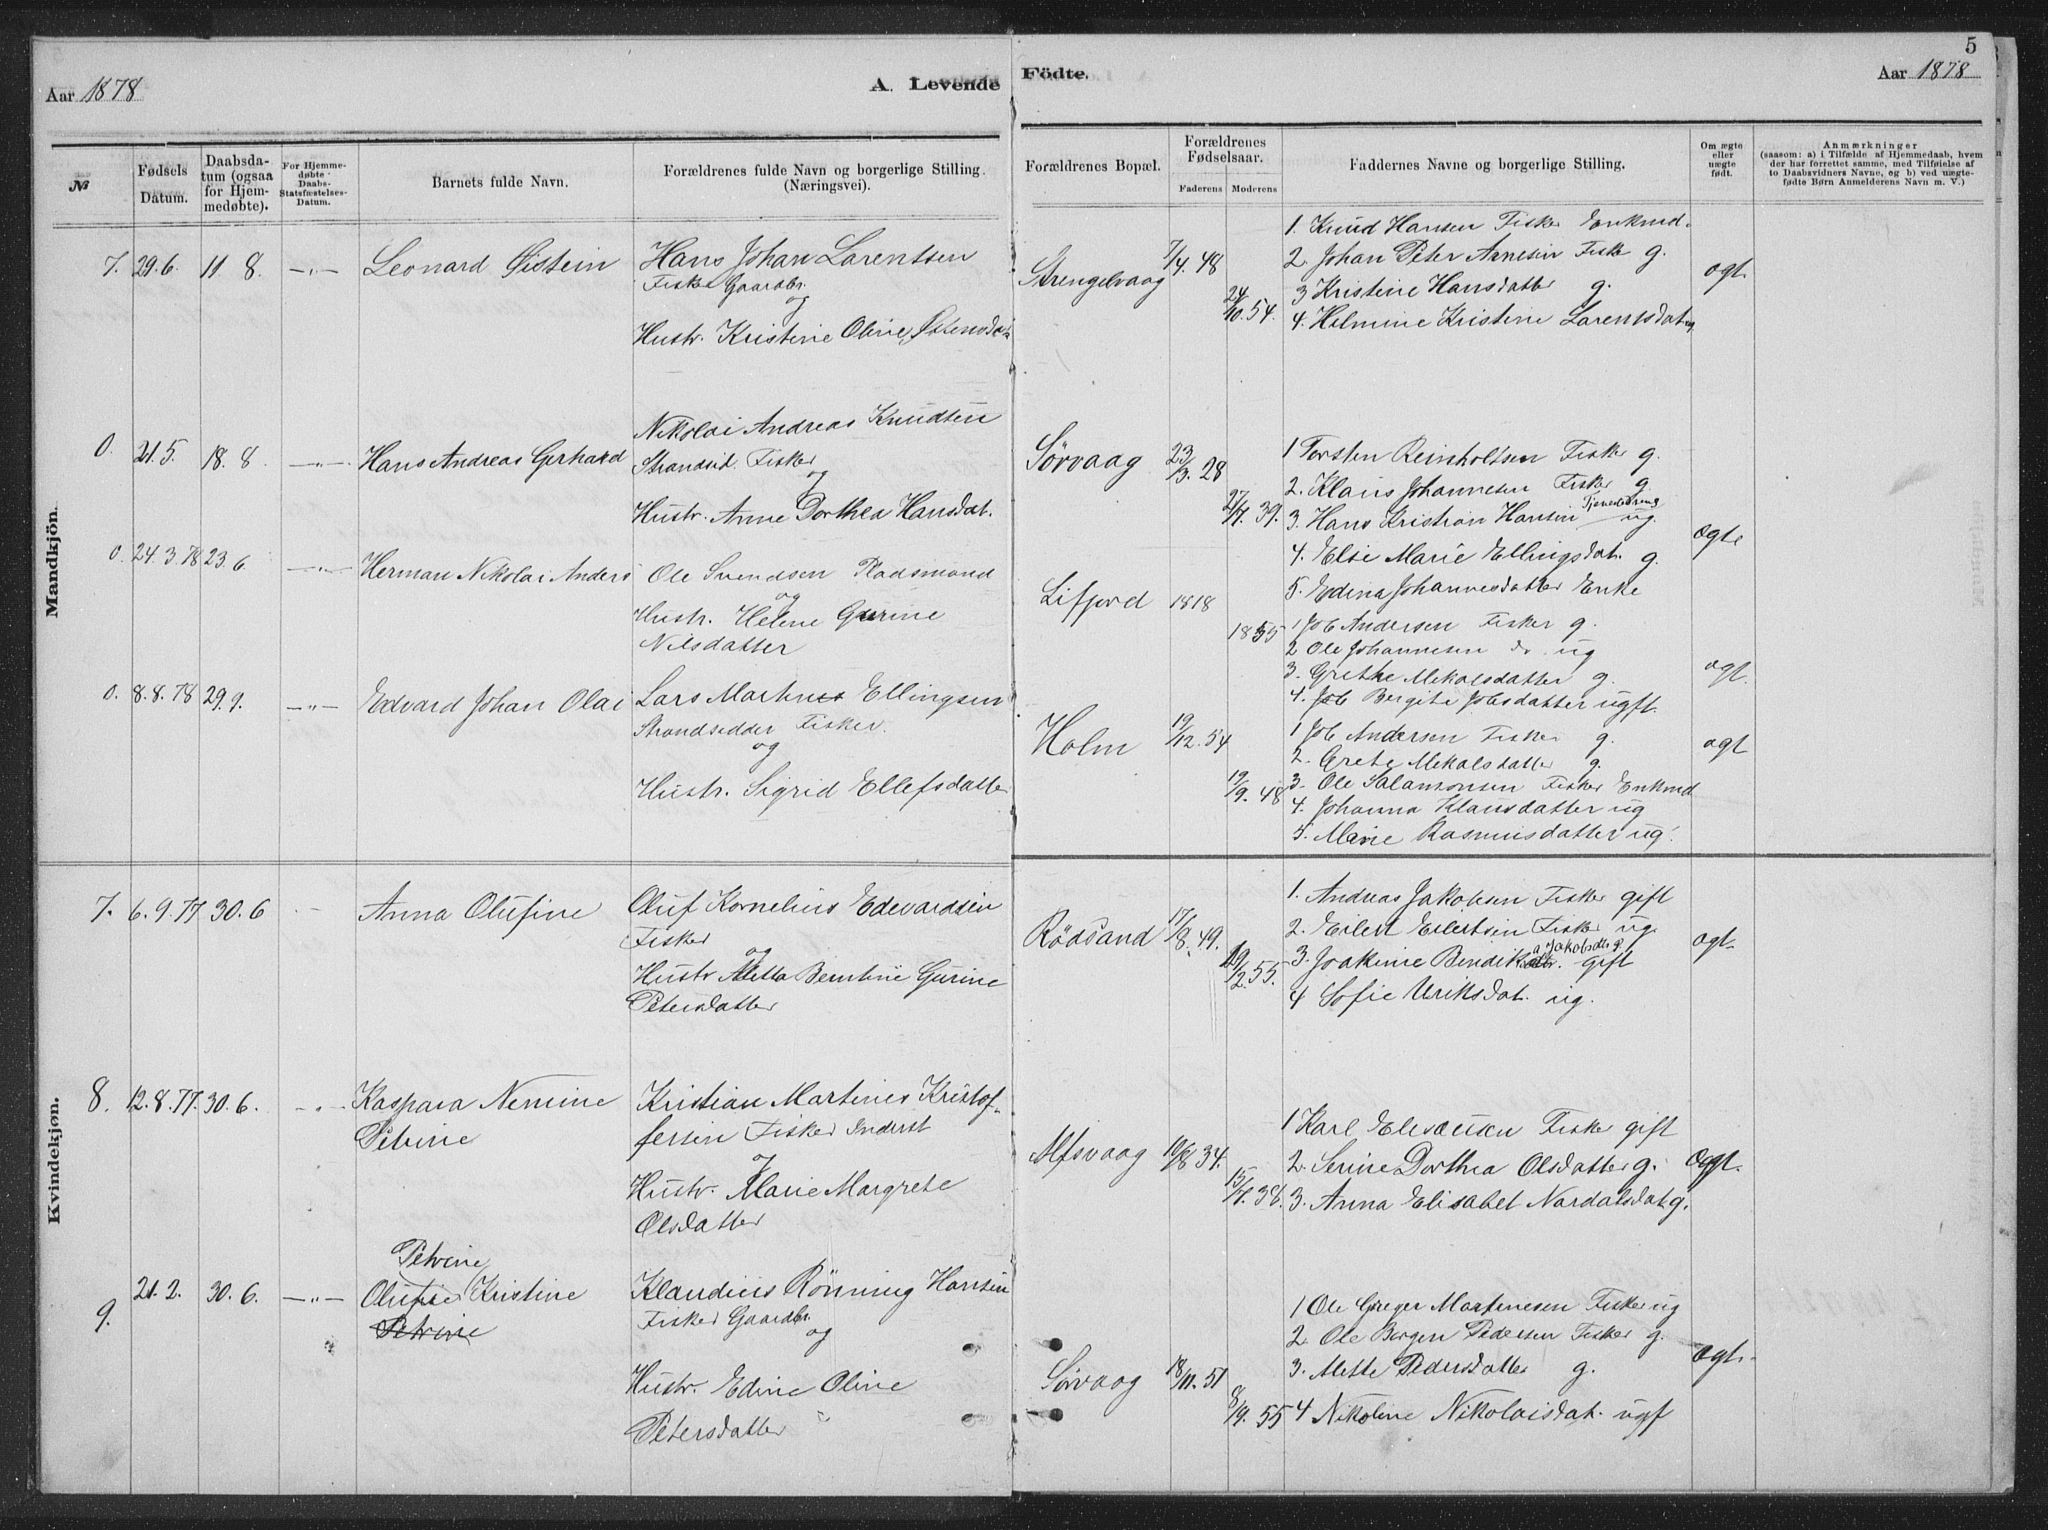 Aar 1878
A. Levende
Mandkjön.
Kvindekjøn.
№
Fødsels Datum.
Daabsdatum (ogsaa for Hjemmedøbte).
For Hjemmedøbte Daabs-Statsfæstelses-Datum.
Barnets fulde Navn.
Forældrenes fulde Navn og borgerlige Stilling. (Næringsvei).
7. 29.6. 11 8. —"— Leonard Øistein
Hans Johan Larentsen
Fisker Gaardbr.
og
Hustr. Kristine Oline Østensdat
0. 21.5. 18.8 —"— Hans Andreas Gerhard
Nikolai Andreas Knudsen
Strandsid. Fisker
og
Hustr. Anne Dorthea Hansdat.
0. 24.3.78 23.6 —"— Herman Nikolai Anders
Ole Svendsen Pladsmand
og
Hustr. Helene Gurine
Nilsdatter
0. 8.8.78 29.9. —"— Edvard Johan Olai
Lars Martin Ellingsen
Strandsidder Fisker.
og
Hustr. Sigrid Ellefsdatter
7. 6.9.77 30.6 Anna Olufine
Oluf Kornelius Edevardsen
Fisker
og
Hustr Mette Berntine Gurine
Petersdatter
8. 12.8.77. 30.6. —"— Kaspara Nenine
Petrine
Kristian Martines Kristof-
fersen Fisker Inderst
og
Hustr. Marie Margrete
Olsdatter
9. 21.2. 30.6. —"—
Petrine
Olufine Kristine
Petrine
Klaudius Rönning Hansen
Fisker Gaardbr.
og
Hustr. Edine Oline
Petersdatter
5
Födte.
Aar 1878
Forældrenes Bopæl.
Forældrenes Fødselsaar.
Faderens
Moderens
Faddernes Navne og borgerlige Stilling.
Om ægte eller uægte født.
Anmærkninger
(saasom: a) i Tilfælde af Hjemmedaab, hvem der har forrettet samme, med Tilføielse af to Daabsvidners Navne, og b) ved uægtefødte Børn Anmelderens Navn m. V.)
Strengelvaag 7/4. 48 24/10. 54.
1. Knud Hansen Fisker Enkmd.
2. Johan Peter Arnesen Fisker g.
3 Kristine Hansdatter g.
4. Helmine Kristine Larentsdat ug
ægt.
Sørvaag 23/3. 28 27/4. 39.
1 Torsten Reinholtsen Fisker g.
2. Klaus Johannesen Fisker g
3. Hans Kristian Hansen Tjenestedreng ug.
4. Else Marie Ellingsdat. g.
5. Edina Johannesdatter Enke
ægte
Lifjord 1818 1855
1 Job Andersen Fisker g.
2 Ole Johannesen do. ug
3. Grethe Mekalsdatter g.
4. Job Bergite Jobsdatter ugft.
ægt.
Holm 19/12. 54 19/9. 48
1 Job Andersen Fisker g.
2. Grete Mekalsdatter g.
3. Ole Salamonsen Fisker Enkmd
4. Johanna Klausdatter ug
5. Marie Rasmusdatter ug.
ægt
Rödsand 17/8. 49. 19/2. 55.
1. Andreas Jakobsen Fisker gift
2. Eilert Eilertsen Fisker ug.
3. Joakime Bendik Jakobsdtr g. gift
4 Sofie Uriksdat. ug.
ægt.
Alfsvaag 10/8 34. 15/7. 38.
1 Karl Eliseusen Fisker gift
2. Serine Dorthea Olsdatter g.
3. Anna Elisabet Nordalsdat g.
ægt.
Sørvaag 18/11. 51 8/9. 55
1 Ole Greger Martinesen Fisker ug
2. Ole Bergen Pedersen Fisker g.
3. Mette Pedersdatter g.
4 Nikoline Nikolaisdat. ugf
ægt.